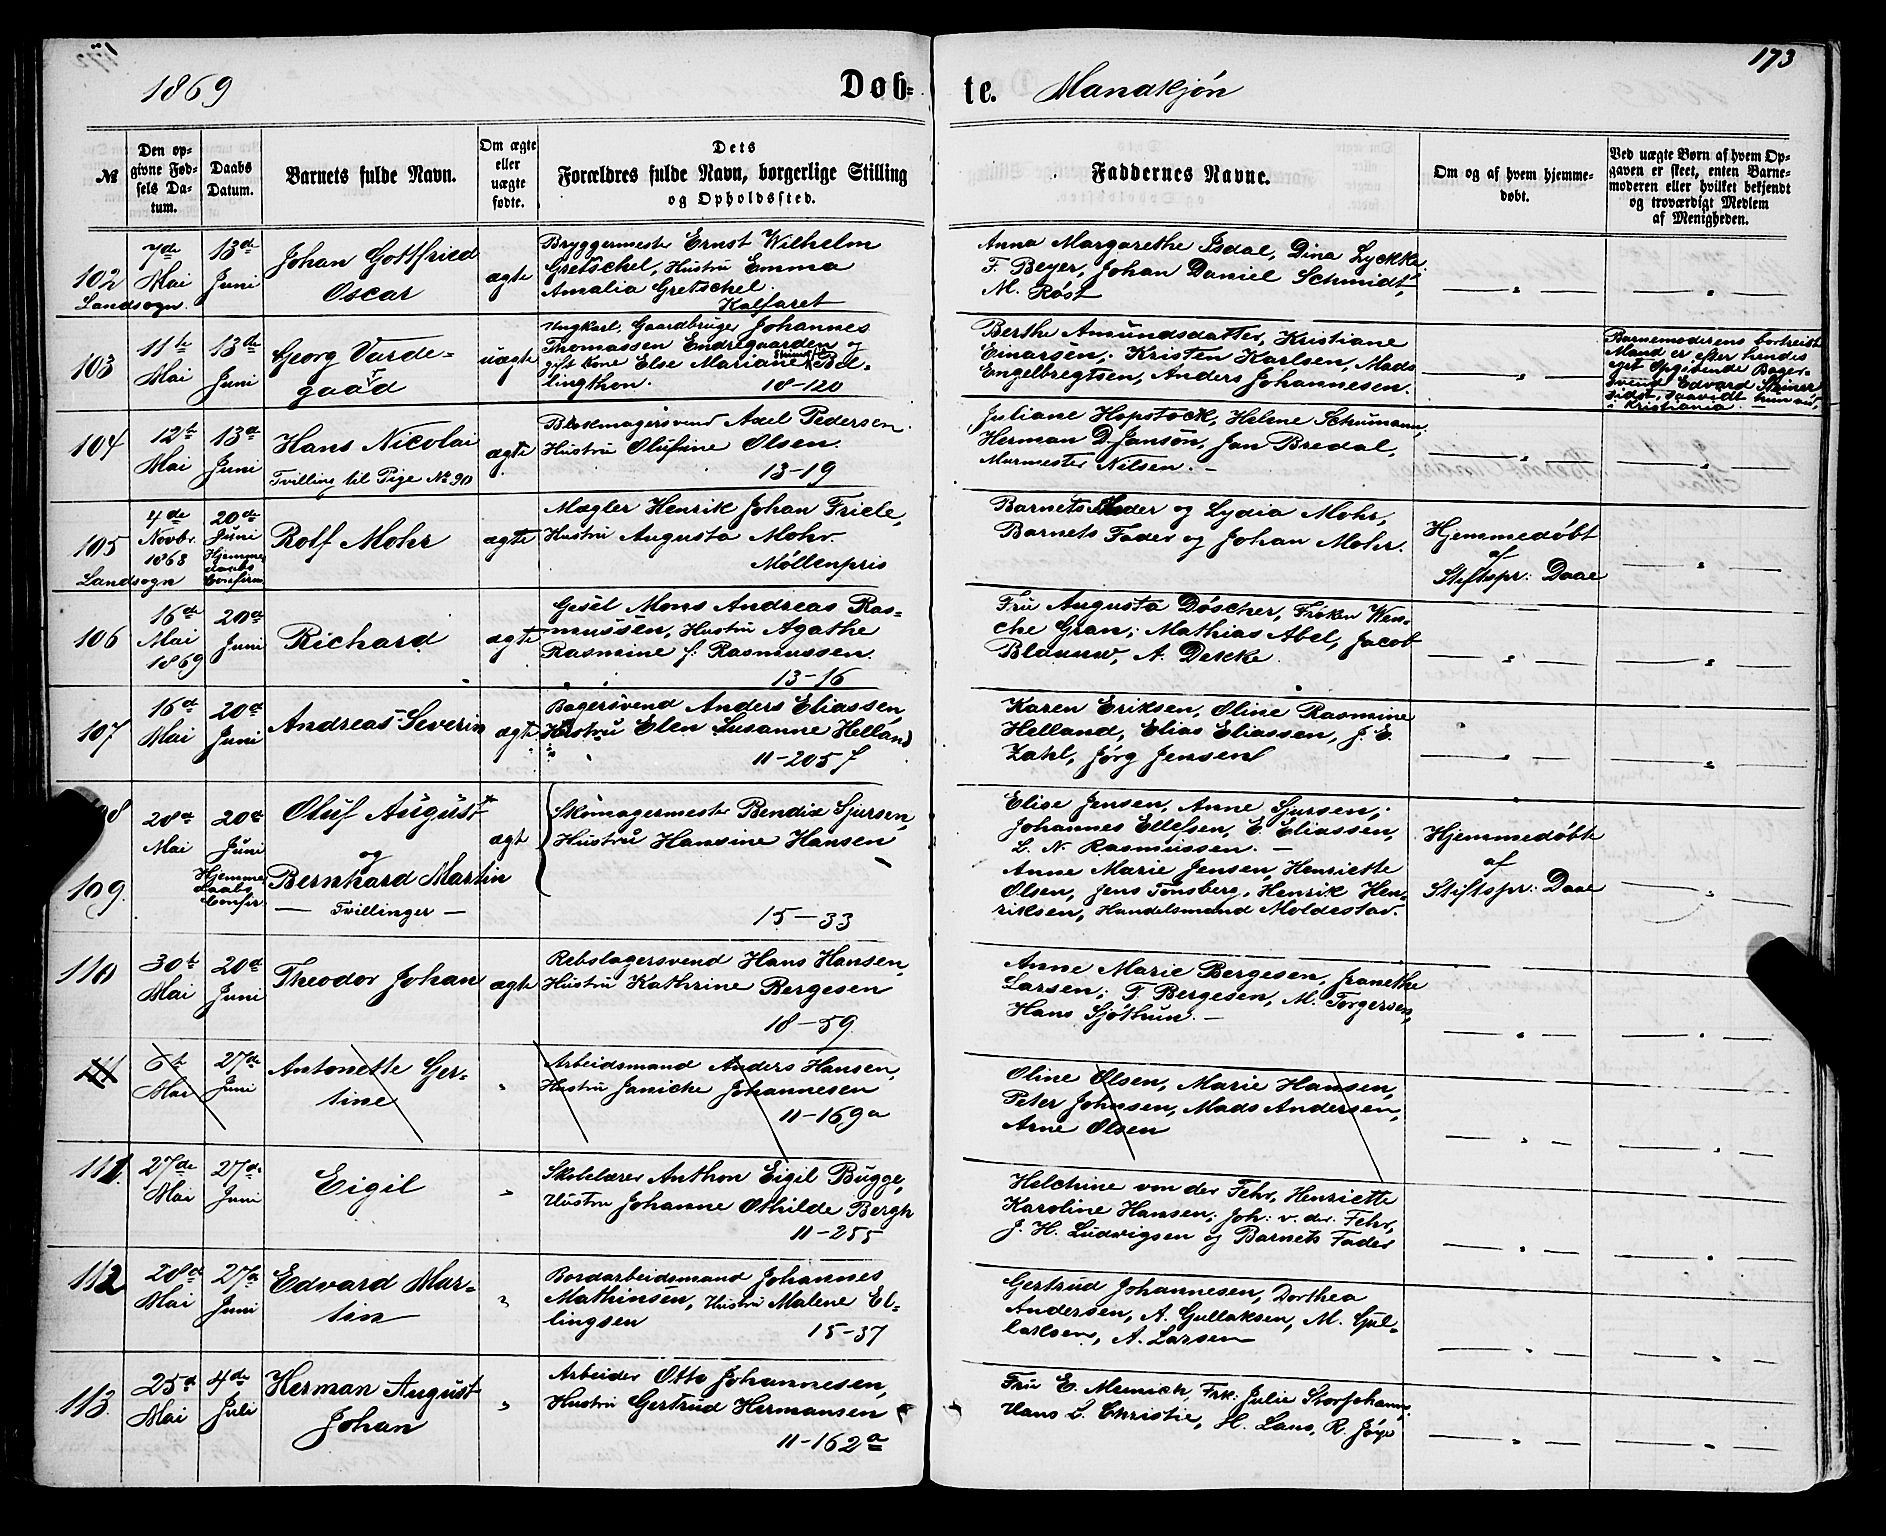 173
1869
Døb-
te.
Mandkjøn
№
Den op-
givne Fød-
sels Da-
tum.
Daabs
Datum.
Barnets fulde Navn.
Om ægte
eller
uægte
fødte.
Dets
Forældres fulde Navn, borgerlige Stilling
og Opholdssted.
Faddernes Navne.
Om og af hvem hjemme-
døbt.
Ved uægte Børn af hvem Op-
gaven er skeet, enten Barne-
moderen eller hvilket bekjendt
og troværdigt Medlem
af Menigheden.
102
Landsogn.
7de
Mai
13de
Juni
Johan Gottfried
Oscar
ægte
Bryggermester Ernst Wilhelm
Gretschel, Hustru Emma
Amalia Gretschel.
Kalfaret
Anna Margarethe Isdal, Dina Lyckke
F. Beyer, Johan Daniel Schmidt,
M. Røst
103
11te
Mai
13de
Juni
Georg Varde-
gaard
uægte
Ungkarl, Gaardbruger Johannes
Thomassen Endregaarden og
gift Kone Else Mariane Bel-
lingthon.
18-120
Berthe Amundsdatter, Kristiane
Einarsen, Kristen Karlsen, Mads
Engelbregtsen, Anders Johannesen.
Barnemoderens bortreiste
Mand er efter hendes
eget Opgivende Bager-
svend Edvard Steiner
sidst, saavidt hun ved,
i Kristiania.
104
12te
Mai
13de
Juni
Hans Nicolai
Tvilling til Pige No 90
ægte
Blokmagersvend Axel Pedersen
Hustru Olufine Olsen.
13-19
Juliane Hopstock, Helene Schumann,
Herman D. Janson, Jan Bredal,
Murmester Nilsen.
105
Landsogn
4de
Novbr.
1868
20de
Juni
Hjemme
daabs
Confirm.
Rolf Mohr
ægte
Mægler Henrik Johan Friele,
Hustru Augusta Mohr
Møllenpris
Barnets Moder og Lydia Mohr,
Barnets Fader og Johan Mohr.
Hjemmedøbt
af
Stiftspr: Daae
106
16de
Mai
1869
20de
Juni
Richard
ægte
Gesel Mons Andreas Ras-
mussen, Hustru Agathe
Rasmine f. Rasmussen.
13-16
Fru Augusta Döscher, Frøken Wen-
che Gran, Mathias Abel, Jacob
Blaauw, A. Dekke.
107
16de
Mai
20de
Juni
Andreas Severin
ægte
Bagersvend Anders Eliassen
Hustru Elen Susanne Helland
11-205 f
Karen Eriksen, Oline Rasmine
Helland, Elias Eliassen, J. E.
Zahl, Jörg Jensen
8
28de
Mai
20de
Juni
Hjemme
daabs
Confir.
Oluf August
og
ægt
Skomagermester Bendix Sjursen,
Hustru Hansine Hansen
Elise Jensen, Anne Sjursen,
Johannes Ellefsen, E. Eliassen,
L. N. Rasmussen.
Hjemmedøbte
af
Stiftspr: Daae
109.
Bernhard Martin
Tvillinger
15-33
Anne Marie Jensen, Henriette
Olsen, Jens Tönsberg, Henrik Hen-
riksen, Handelsmand Moldestad.
110
30te
Mai
20de
Juni
Theodor Johan
ægte
Rebslagersvend Hans Hansen,
Hustru Kathrine Bergesen
18-59
Anne Marie Bergesen, Jranethe
Larsen, T. Bergesen, M. Torgersen,
Hans Sjöthun.
111
6te
Mai
27de
Juni
Antonette Ger-
tine
Arbeidsmand Anders Hansen,
Hustru Janicke Johannesen
11-169a
Oline Olsen, Marie Hansen,
Peter Johnsen, Mads Andersen,
Arne Olsen
111.
27de
Mai
27de
Juni
Eigil
Skolelærer Anthon Eigil Bugge,
Hustru Johanne Othilde Bergh
11-255
Helchine von der Fehr, Henriette
Karoline Hansen, Joh: v. der. Fehr,
J. H. Ludvigsen og Barnets Fader
112
28de
Mai
27de
Juni
Edvard Mar-
tin
Bordarbeidsmand Johannes
Mathinsen, Hustru Malene El-
lingsen
15-37
Gertrud Johannesen, Dorthea
Andersen, A. Gullaksen, M. Gul-
laksen, A. Larsen
113.
25de
Mai
4de
Juli
Herman August
Johan
Arbeider Otto Johannesen,
Hustru Gertrud Hermansen
11-162a
Fru E. Meinich, Frk: Julie Storjohann,
Hans L. Christie, H. Lans, R. Jøye